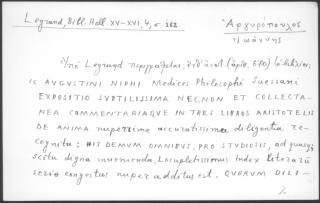 Legrand, Bibl. Hell. XV-XVI, 4, σ. 162
Ἀργυρόπουλος
Ἰωάννης
Ὑπὸ Legrand περιγράφεται,
AUGUSTINI NIPHI Medices Philosophi Suessani
EXPOSITIO SVBTILISSIMA NECNON ET COLLECTA-
NEA COMMENTARIAQVE IN TRES LIBROS ARISTOTELIS
DE ANIMA nuperrime accuratissima diligentia re-
cognita: HIS DEMVM OMNIBVS, PRO STVDIOSIS, ad quaeq
scitu digna invenienda, Locupletissimus Index literarū
serie congestus nuper additus est. QVORVM DILI-